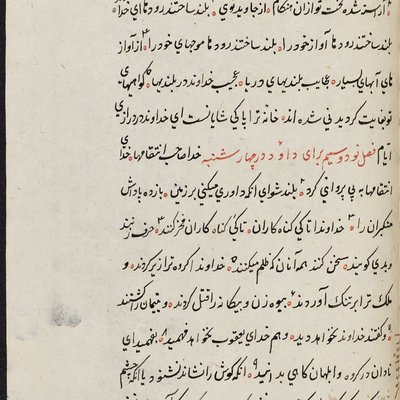 آراسته شده تخت تو از آن هنگام ازجاوید توی بلند ساختند رودهای خدا
بلند ساختند رودها آواز خود را بلند ساختند رودها موجهای خود را از آواز
های آبهای بسیار عجایب بلندیهای دریا عجیب خداوند در بلندیها گواهیهای
تو بغایت کردیدنی شده اند خانه ترا پاکی شایانست ای خداوند در درازی
ایام فصل نود و سیم برای داود در چهارشنبه خدا صاحب انتقامها خدای
انتقامها به بی پروای کرد بلند شو ای انکه داوری میکنی بر زمین بازده پاداش
متکبران را خداوندا تا کی کناه کاران تا کی کناه کاران فخر کنند حرف زنند
و بدی کویند سخن کنند همه آنان که ظلم میکنند خداوندا کرده ترا زبر کردند و
ملک ترا بر تنک آوردند بیوه زن و بیکانه را قتل کردند و یتیمان را کشتند
و کفتند خداوند نخواهد دید و هم خدای یعقوب نخواهد فهمید بفهمید ای
نادان در کروه و ابلهان کاهی بدانید انکه کوش را نشاند نشنود یا انکه چشم